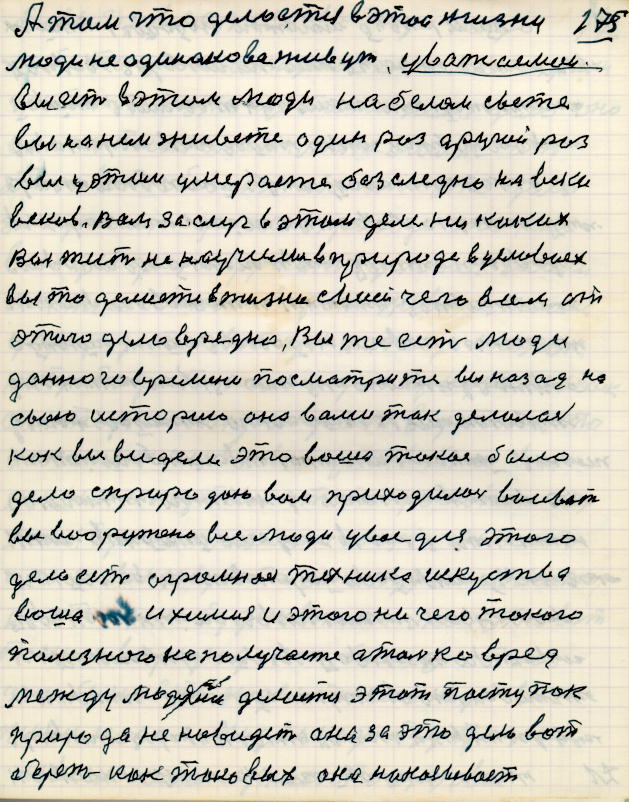 А там что делается в этой жизни 175
люди не одинакова живут, уважаемаи.
вы есть в этом люди на белом свете
вы на нем живете один раз другой раз
вы у этом умераете безследно на веки
веков. Вам заслуг в этом деле ни каких
Вы жить не научились в природе в условиях
вы то делаете в жизни своей чего вам от
этого дело вредно, Вы же есть люди
данного времени посматрите вы назад на
свою историю она вами так делалась
как вы видели это ваша такое было
дело сприродою вам приходилось воивать
вы вооружены все люди у вас для этого
дело есть огромная техника искуства
ваша и химия и этого ни чего такого
полезного не получаете а только вред
между людями делается этот поступок
природа не новидет она за это дело вот
оберет как таковых она наказывает